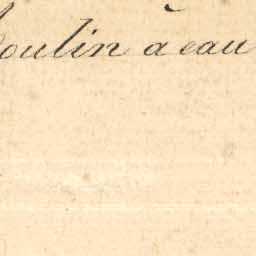 oulin à eau